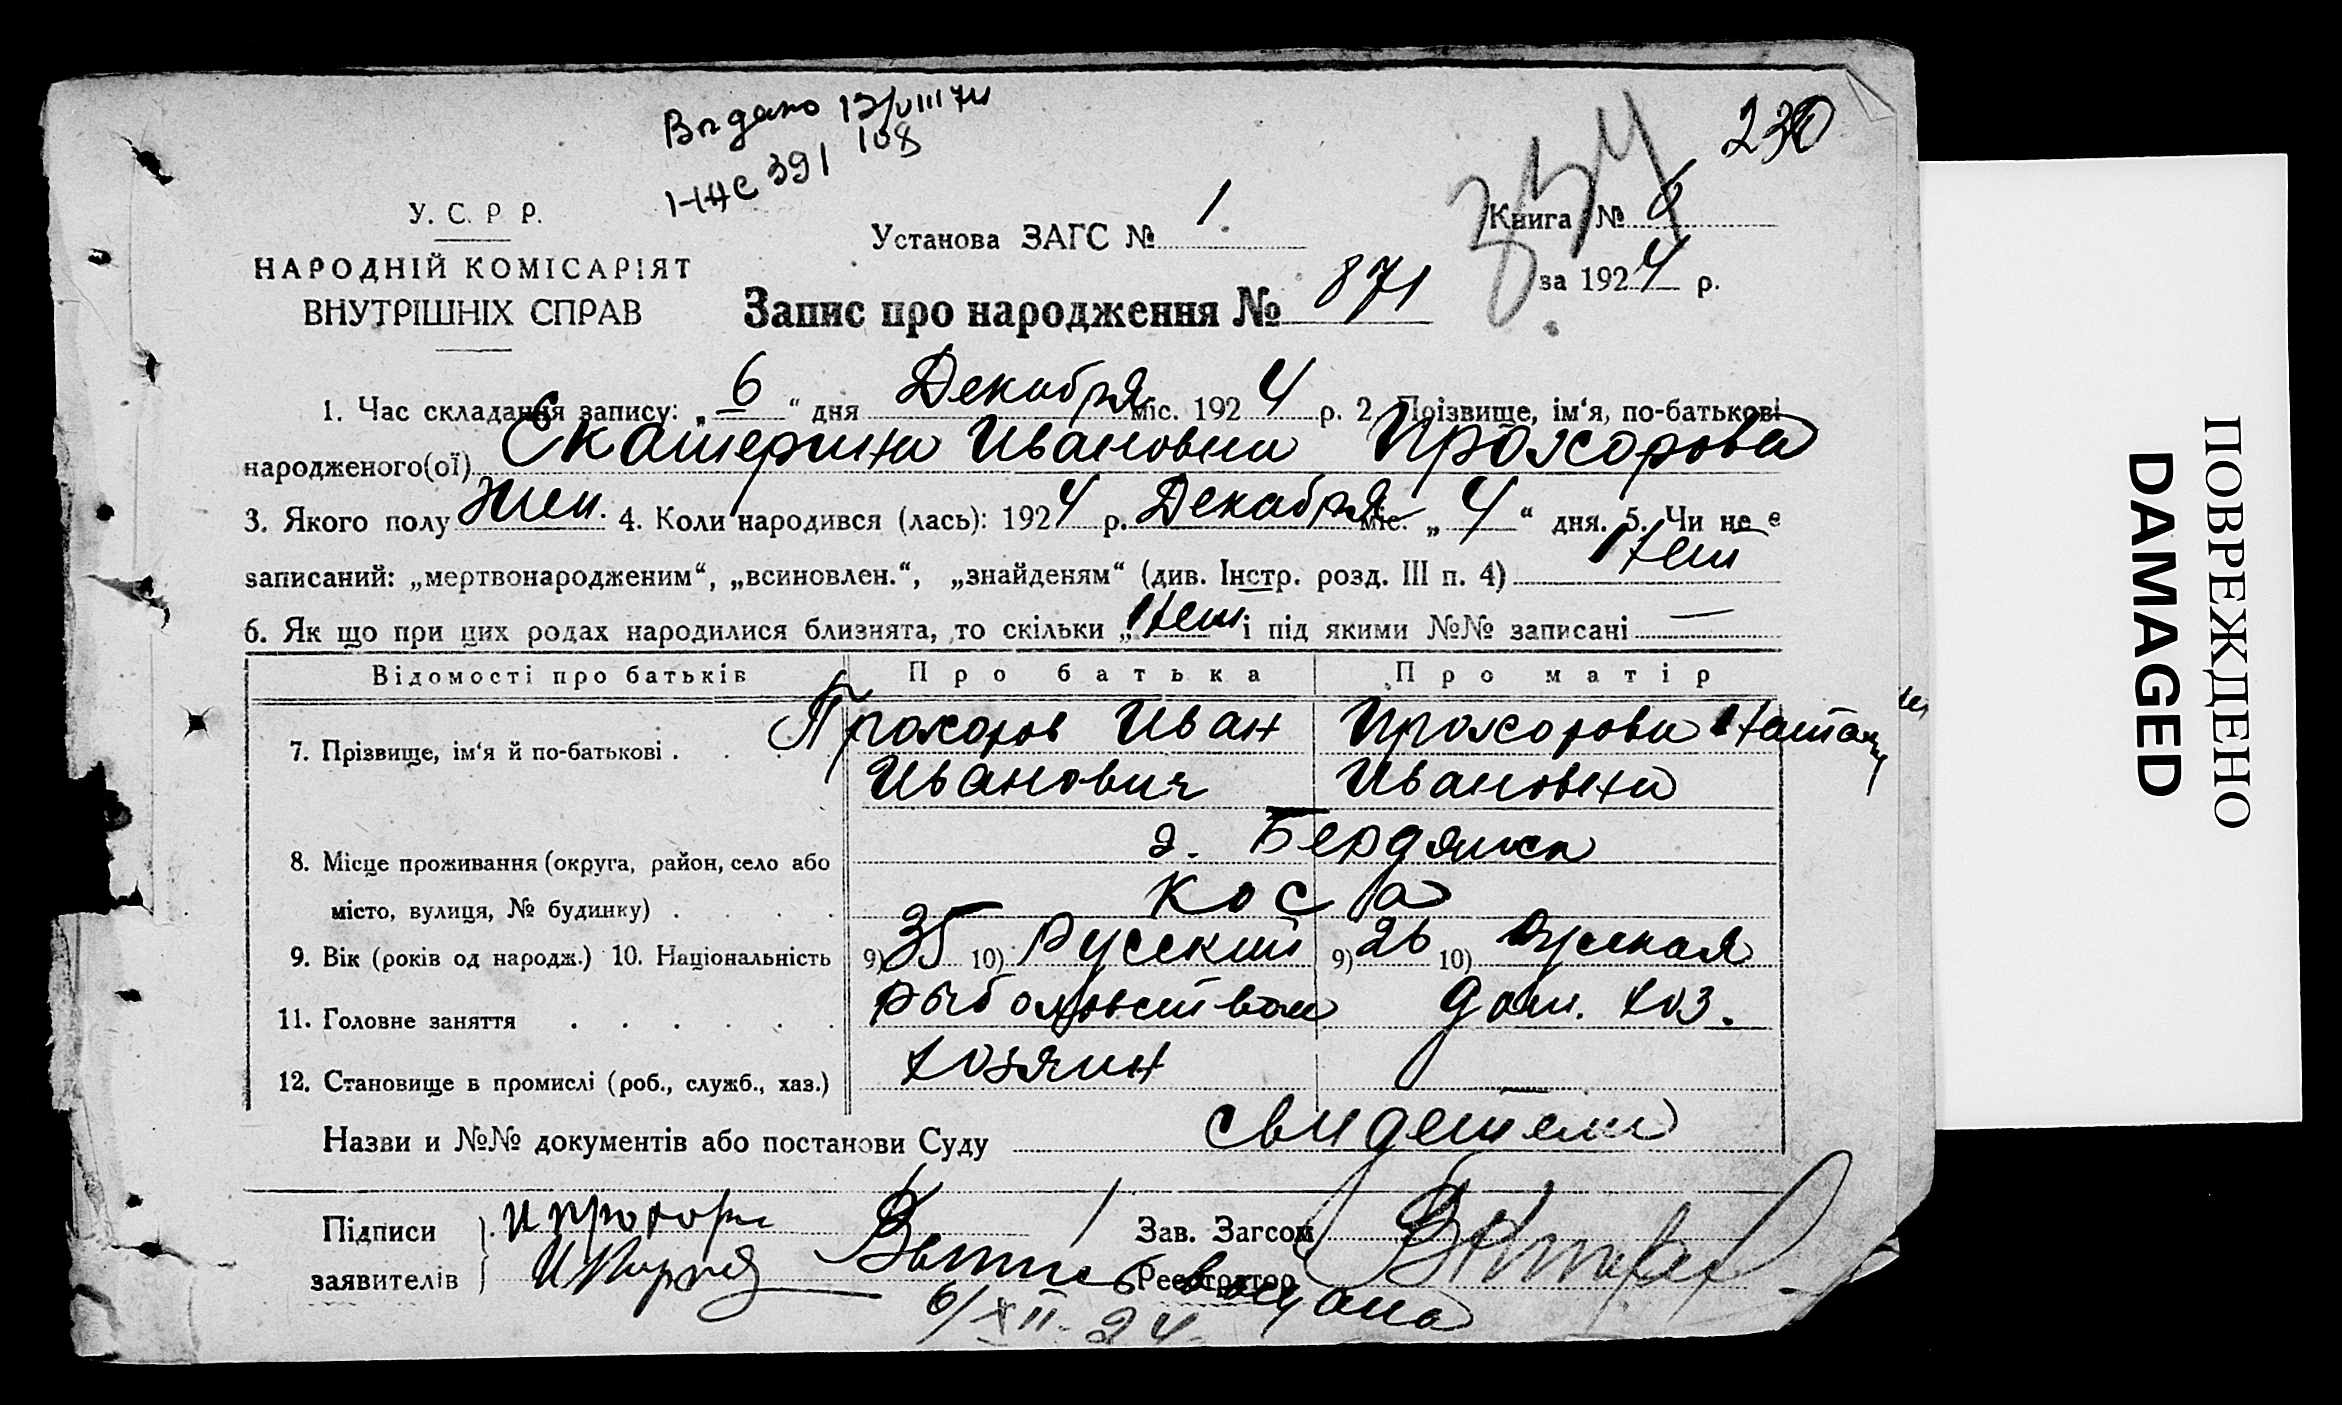 Видано 13/VIII 74
108
230
У. С. Р Р.
Установа ЗАГС № 1.
Книга № 6
НАРОДНІЙ КОМІСАРІЯТ
ВНУТРІШНІХ СПРАВ
за 1924 р.
Запис про народження № 871
1. Час складання запису: „6“ дня Декабря міс. 1924 р. 2. Прізвище, ім‘я, по-батькові
народженого(ої) Екатерина Ивановна Прохорова
3. Якого полу жен. 4. Коли народився (лась): 1924 р. Декабря міс. „4“ дня. 5. Чи не є
записаний: „мертвонародженим“, „всиновлен.“, „знайденям“ (див. Інстр. розд. III п. 4) Нет
6. Як що при цих родах народилися близнята, то скільки „Нет і під якими №№ записані —
Відомості про батьків Про батька Про матір
7. Прізвище, ім‘я й по-батькові . Прохоров Иван Прохорова Наталия
Иванович Ивановна
г. Бердянск
8. Місце проживання (округа, район, село або
місто, вулиця, № будинку) . . . . коса
9. Вік (років од народж.) 10. Національність 9) 35 10) Русский 9) 26 10) Русская
11. Головне заняття . . . . . . рыболовством дом. хоз.
12. Становище в промислі (роб., служб., хаз.) хозяин —
Назви и №№ документів або постанови Суду свидетели
Підписи
Зав. Загсом
заявителів
Реєстратор
6/XII-24
ПОВРЕЖДЕНО
DAMAGED